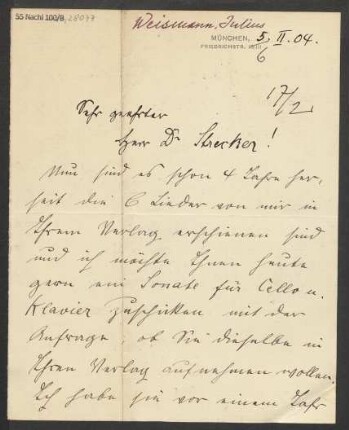 55 Nachl 100/B
Weismann, Julius
MÜNCHEN, 5. II. 04.
FRIEDRICHSTR.
6
17/2
Sehr geehrter
Herr Dr Strecker!
Nun sind es schon 4 Jahre her,
seit die 6 Lieder von mir in
Ihrem Verlag erschienen sind
und ich möchte Ihnen heute
gern ein Sonate für Cello u.
Klavier zuschicken mit der
Anfrage, ob Sie dieselbe in
Ihren Verlag aufnehmen wollen.
Ich habe sie vor einem Jahr